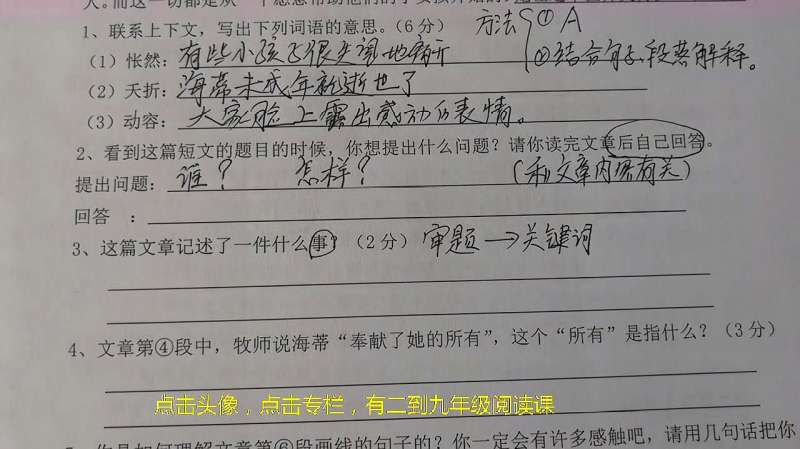 1、联系上下文，写出下列词语的意思。(6分) 方法 ① A
(1) 怅然：有些小孩子很失望地离开 ②结合句子段落解释。
(2) 夭折：海蒂未成年就逝世了
(3) 动容：大家脸上露出感动的表情。
2、看到这篇短文的题目的时候，你想提出什么问题？请你读完文章后自己回答。
提出问题：谁？ 怎样？ (和文章内容有关)
回答 ：
3、这篇文章记述了一件什么事？(2分) 审题→关键词
4、文章第④段中，牧师说海蒂“奉献了她的所有”，这个“所有”是指什么？(3分)
点击头像，点击专栏，有二到九年级阅读课
你是如何理解文章第⑥段画线的句子的？你一定会有许多感触吧，请用几句话把你